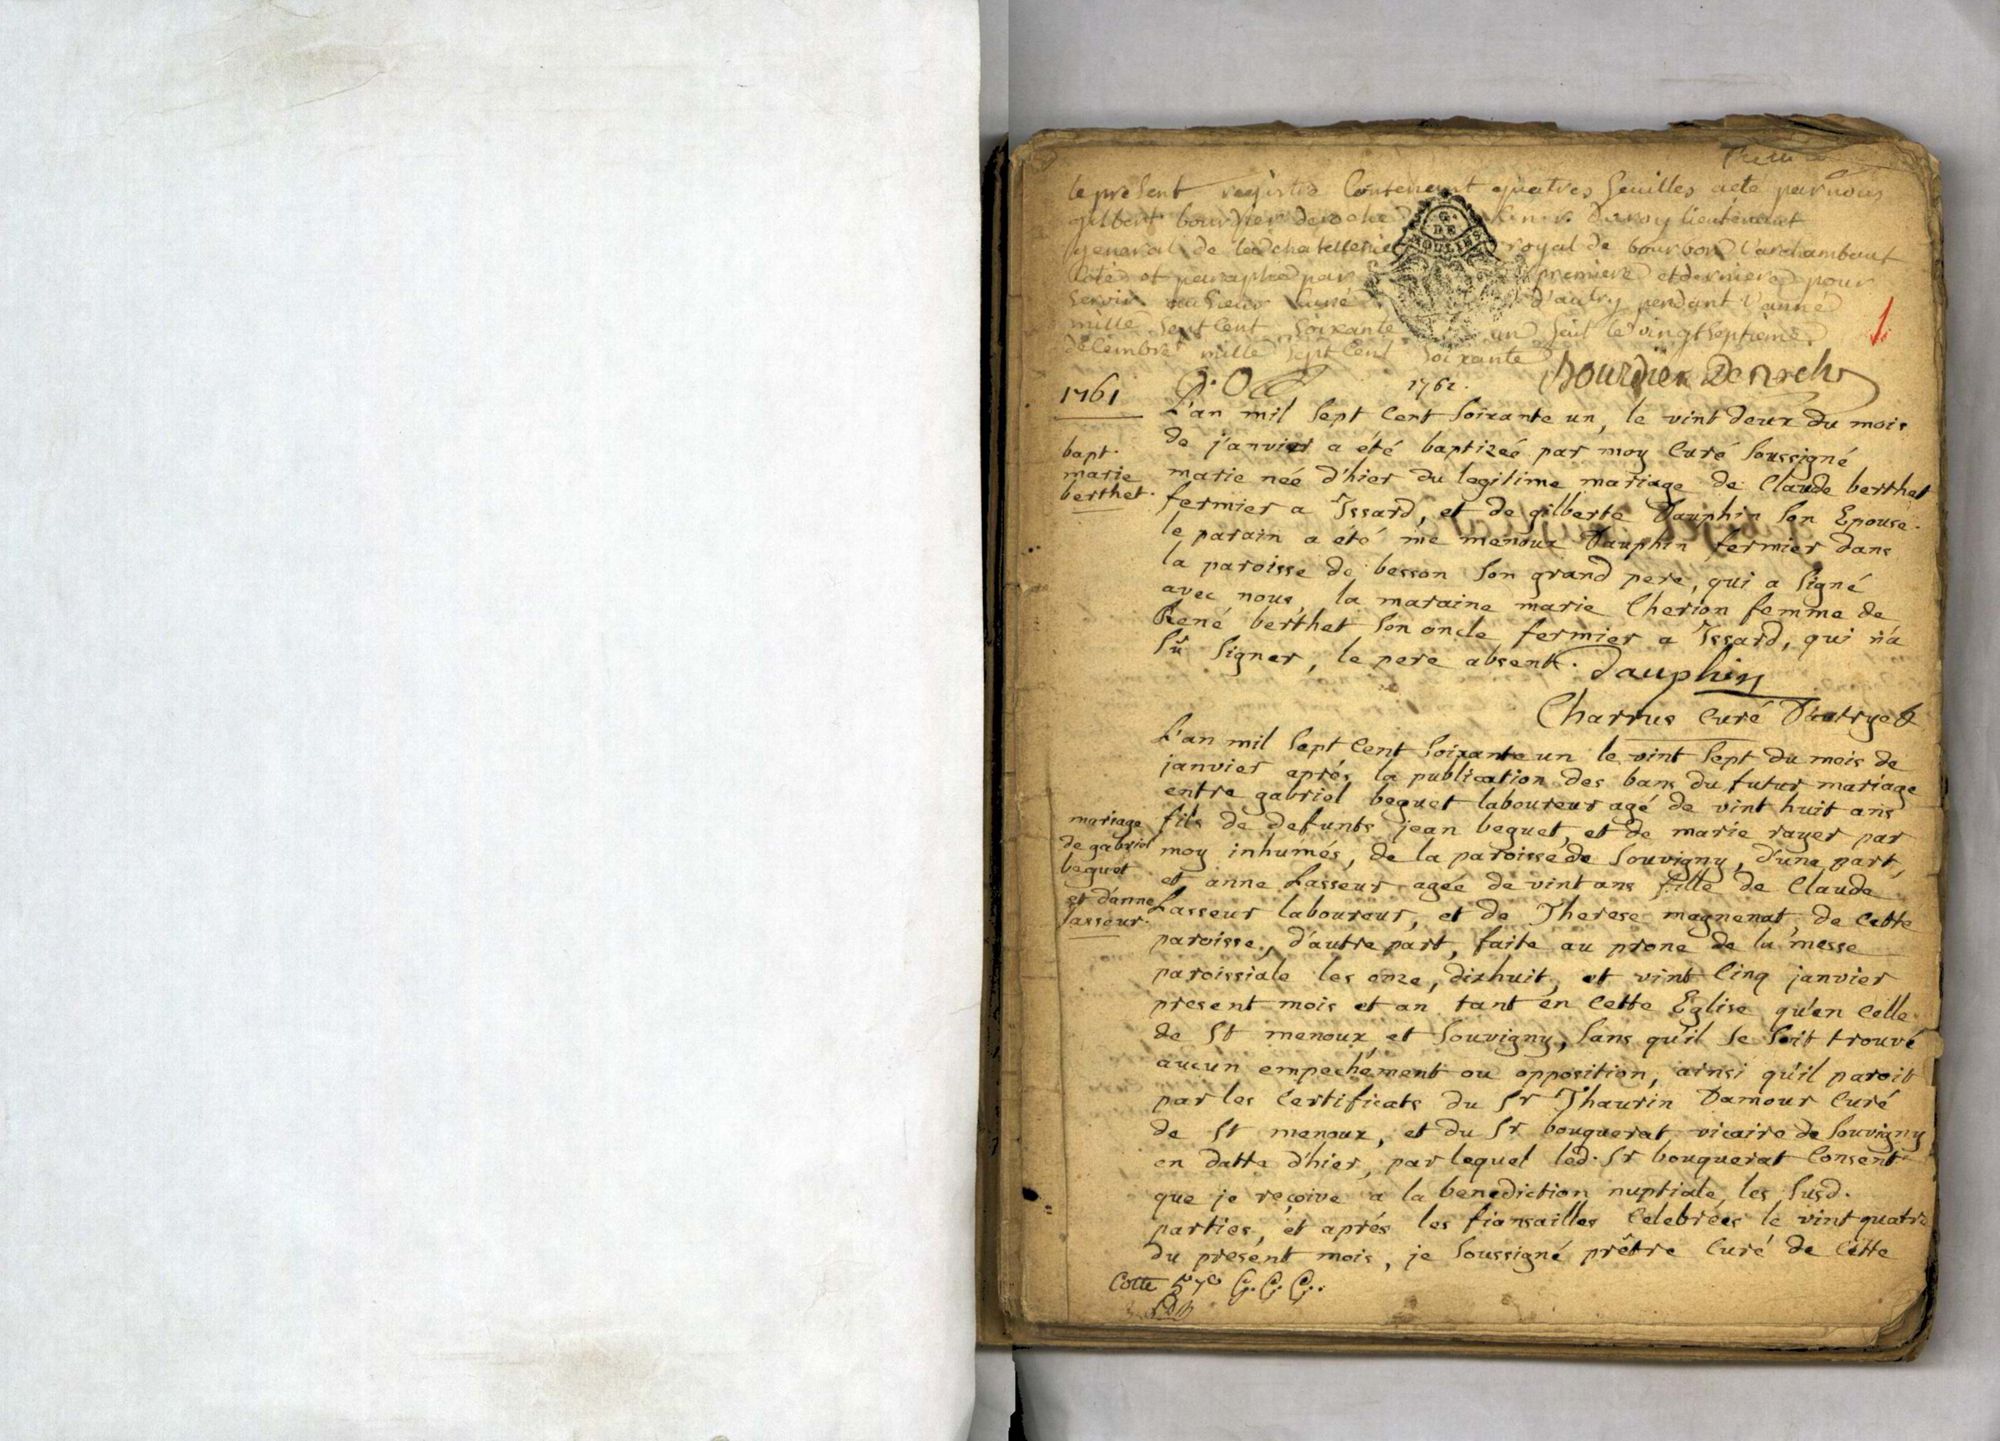 le present registre Contenant quatres feuilles acté par nous
gilbert bourdier deroche du roy lieutenant
general de la chatellenie royal de bourbon Larchambaut
Coté et paraphé par premiere et derniere pour
servir au sieur Curé d'autry pendant l'année
mille sept Cent soixante un le vingtseptieme
decembre mille sept Cent soixante
G.
DE
MOULINS
1
Bourdier Deroche
1761
1761.
L'an mil sept Cent soixante un, le vint deux du mois
de janvier a été baptizée par moy Curé soussigné
bapt.
marie
berthet.
marie née d'hier du legitime mariage de Claude berthet
fermier a Issard, et de gilberte Dauphin son Epouse.
le parain a été me menoux Dauphin fermier dans
la paroisse de besson son grand pere, qui a signé
avec nous, la maraine marie Cherion femme de
René berthet son oncle fermier a Issard, qui n'a
sû signer, le pere absent.
Dauphin
Charrus Curé D'autry
L'an mil sept Cent soixante un le vint sept du mois de
janvier aprés la publication des bans du futur mariage
entre gabriel beguet laboureur agé de vint huit ans
mariage
de gabriel
beguet
et d'anne
Lasseur.
fils de defunts jean beguet, et de marie rayer par
moy inhumés, de la paroisse de Souvigny, d'une part,
et anne Lasseur agée de vint ans fille de Claude
Lasseur laboureur, et de Therese magnenat, de Cette
paroisse, d'autre part, faite au prone de la messe
paroissiale les onze, dixhuit, et vint Cinq janvier
present mois et an tant en Cette Eglise qu'en Celle
de St menoux et Souvigny, sans qu'il se soit trouvé
aucun empechement ou opposition, ainsi qu'il paroit
par les Certificats du Sr Thaurin Damour Curé
de St menoux, et du Sr bouquerat vicaire de Souvigny
en datte d'hier, par lequel led. Sr bouquerat Consent
que je reçoive a la benediction nuptiale, les susd.
parties, et aprés les fiansailles Celebrées le vint quatre
du present mois, je soussigné prêtre Curé de Cette
Cotte